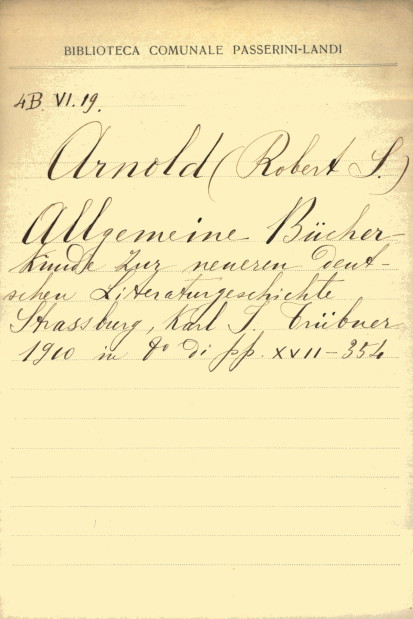 BIBLIOTECA COMUNALE PASSERINI-LANDI
4B. VI. 19.
Arnold (Robert S.)
Allgemeine Bücher-
kunde zur neueren deut-
schen Literaturgeschichte
Strassburg, Karl S. Trübner
1910 in 8° di pp. XVII-354